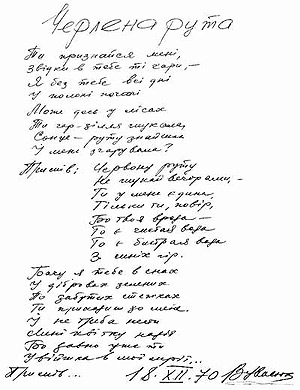 Червона рута
Ти признайся мені,
Звідки в тебе ті чари, –
Я без тебе всі дні
У полоні печалі
Може десь у лісах
Ти чар-зілля шукала,
Сонце-руту знайшла
У мене зчарувала?
Приспів: Червону руту
Не шукай вечорами, –
Ти у мене єдина,
Тільки ти, повір,
Бо твоя врода –
То є чистая вода
То є бистрая вода
З синіх гір.
Бачу я тебе в снах
У дібровах зелених
По забутих стежках
Ти приходиш до мене.
І не треба нести
Мені квітку надії
Бо давно уже ти
Увійшла в мої мрії...
Приспів...
18.XII.70